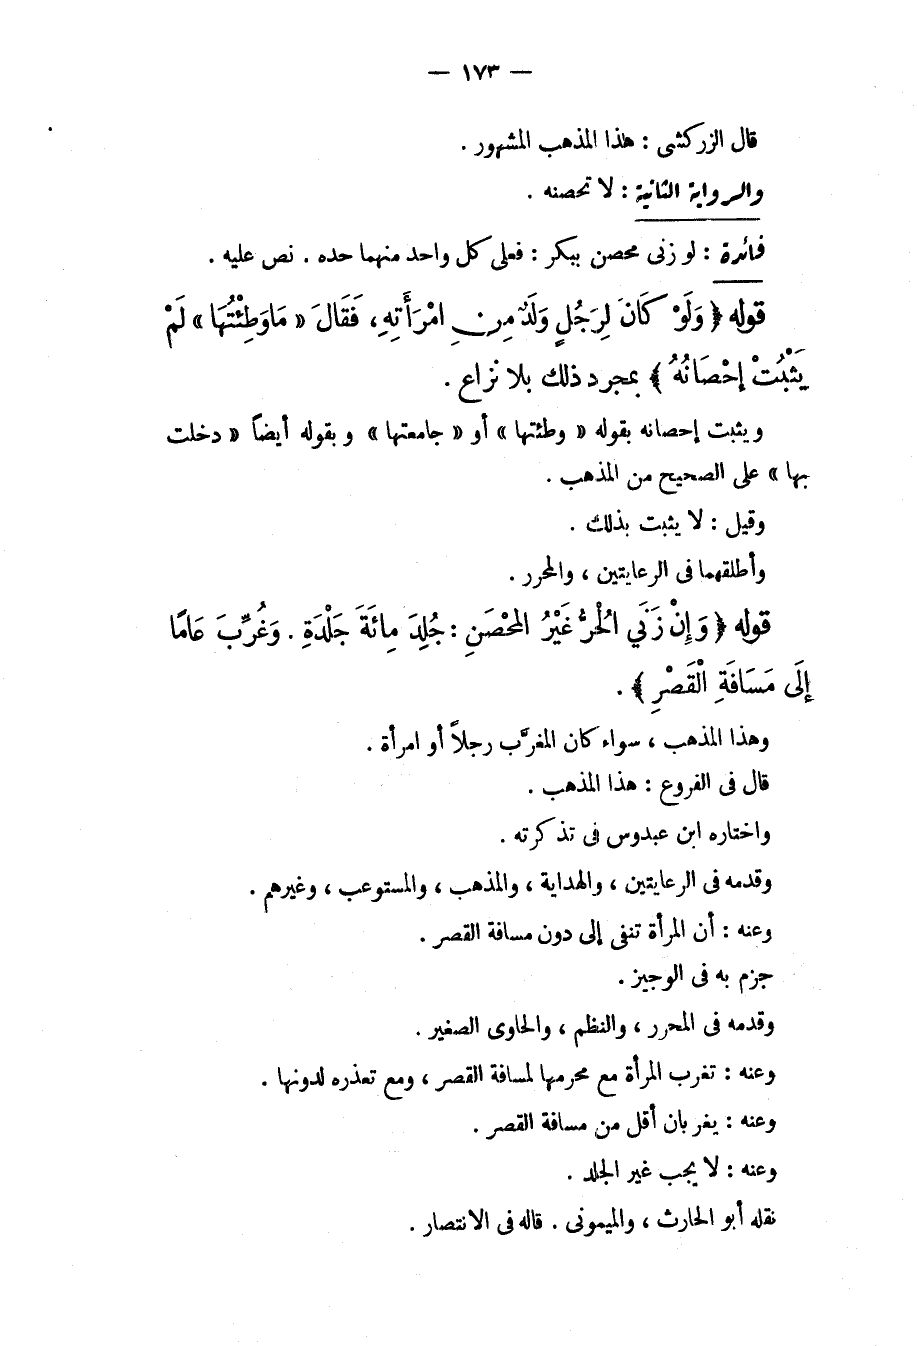 — ١٧٣ —
قال الزركشى : هذا المذهب المشهور .
والرواية الثانية : لا تحصنه .
فائدة : لو زنى محصن ببكر : فعلى كل واحد منهما حده . نص عليه .
قوله ﴿ وَلَوْ كَانَ لِرَجُلٍ وَلَدٌ مِنِ امْرَأَتِهِ ، فَقَالَ « مَاوَطِئْتُهَا » لَمْ
يَثْبُتْ إِحْصَانُهُ ﴾ بمجرد ذلك بلا نزاع .
ويثبت إحصانه بقوله « وطئتها » أو « جامعتها » وبقوله أيضاً « دخلت
بها » على الصحيح من المذهب .
وقيل : لا يثبت بذلك .
وأطلقهما فى الرعايتين ، والمحرر .
قوله ﴿ وَإِنْ زَنَي الْحُرُّ غَيْرُ المُحْصَنِ : جُلِدَ مِائَةَ جَلْدَةٍ . وَغُرِّبَ عَامًا
إِلَى مَسَافَةِ الْقَصْرِ ﴾ .
وهذا المذهب ، سواء كان المغرَّب رجلاً أو امرأة .
قال فى الفروع : هذا المذهب .
واختاره ابن عبدوس فى تذكرته .
وقدمه فى الرعايتين ، والهداية ، والمذهب ، والمستوعب ، وغيرهم .
وعنه : أن المرأة تنفى إلى دون مسافة القصر .
جزم به فى الوجيز .
وقدمه فى المحرر ، والنظم ، والحاوى الصغير .
وعنه : تغرب المرأة مع محرمها لمسافة القصر ، ومع تعذره لدونها .
وعنه : يغربان أقل من مسافة القصر .
وعنه : لا يجب غير الجلد .
نقله أبو الحارث ، والميمونى . قاله فى الانتصار .